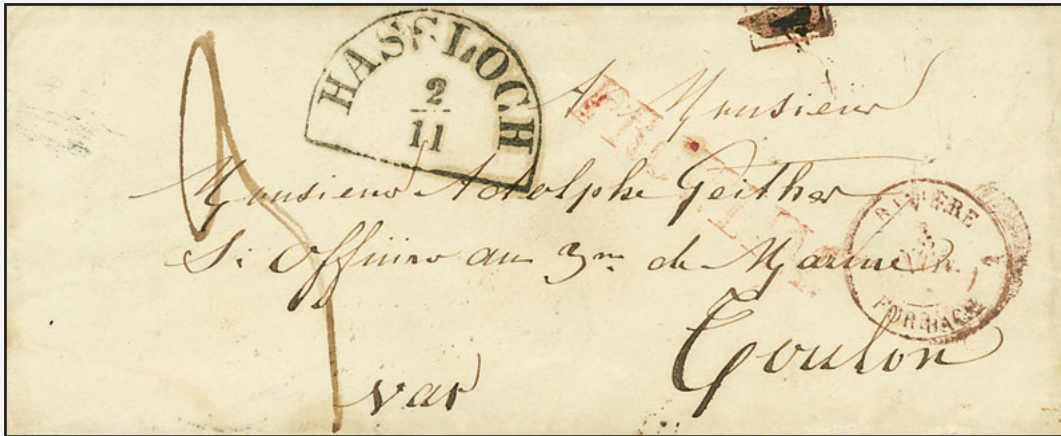 HASSLOCH
2
11
A Monsieur
Monsieur Adolphe Geither
S: Officier au 3me de Marine
Toulon
Var
BAVIERE
FORBACH